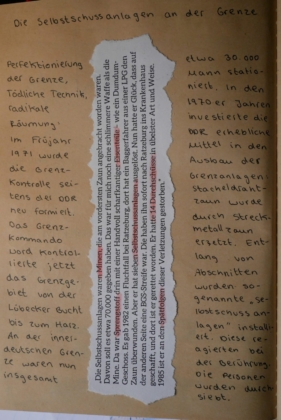 Die Selbstschussanlagen an der Grenze
Perfektionierung
der Grenze,
Tödliche Technik,
radikale
Räumung
Im Frühjahr
1971 wurde
die Grenz-
kontrolle sei-
tens der DDR
neu formiert.
Das Grenz-
kommando
word kontrol-
lierte jetzt
das Grenzge-
biet von der
Lübecker Bucht
bis zum Harz.
An der inner-
deutschen Gren-
ze waren nun
insgesamt
„Die Selbstschussanlagen waren Minen, die am vordersten Zaun angebracht worden waren.
Davon soll es etwa 70.000 gegeben haben. Das war für mich noch eine schlimmere Waffe als die
Mine. Da war Sprengstoff drin mit einer Handvoll scharfkantiger Eisenteile – wie ein Dumdum-
Geschoss. Es gab 1982 einen Fluchtfall bei Ratzeburg, dort hat ein Baggerfahrer aus einer LPG den
Zaun überwunden. Aber er hat sieben Selbstschussanlagen ausgelöst. Nun hatte er Glück, dass auf
der anderen Seite eine BGS-Streife war. Die haben ihn sofort nach Ratzeburg ins Krankenhaus
geschafft, und dort ist er gerettet worden. Er hatte 14 Durchschüsse in übelster Art und Weise.
1985 ist er an den Spätfolgen dieser Verletzungen gestorben."
etwa 30.000
Mann statio-
niert. In den
1970er Jahren
investierte die
DDR erhebliche
Mittel in den
Ausbau der
Grenzanlagen
Stacheldraht-
zaun wurde
durch Streck-
metallzaun
ersetzt. Ent-
lang von
Abschnitten
wurden so-
genannte „Se-
lbstschussan-
lagen" install-
iert. Diese re-
agierten bei
der Berührung
Die Personen
wurden durch
siebt.